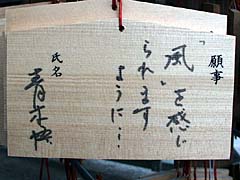 願事
「風」を感じ
られます
ように…
氏名